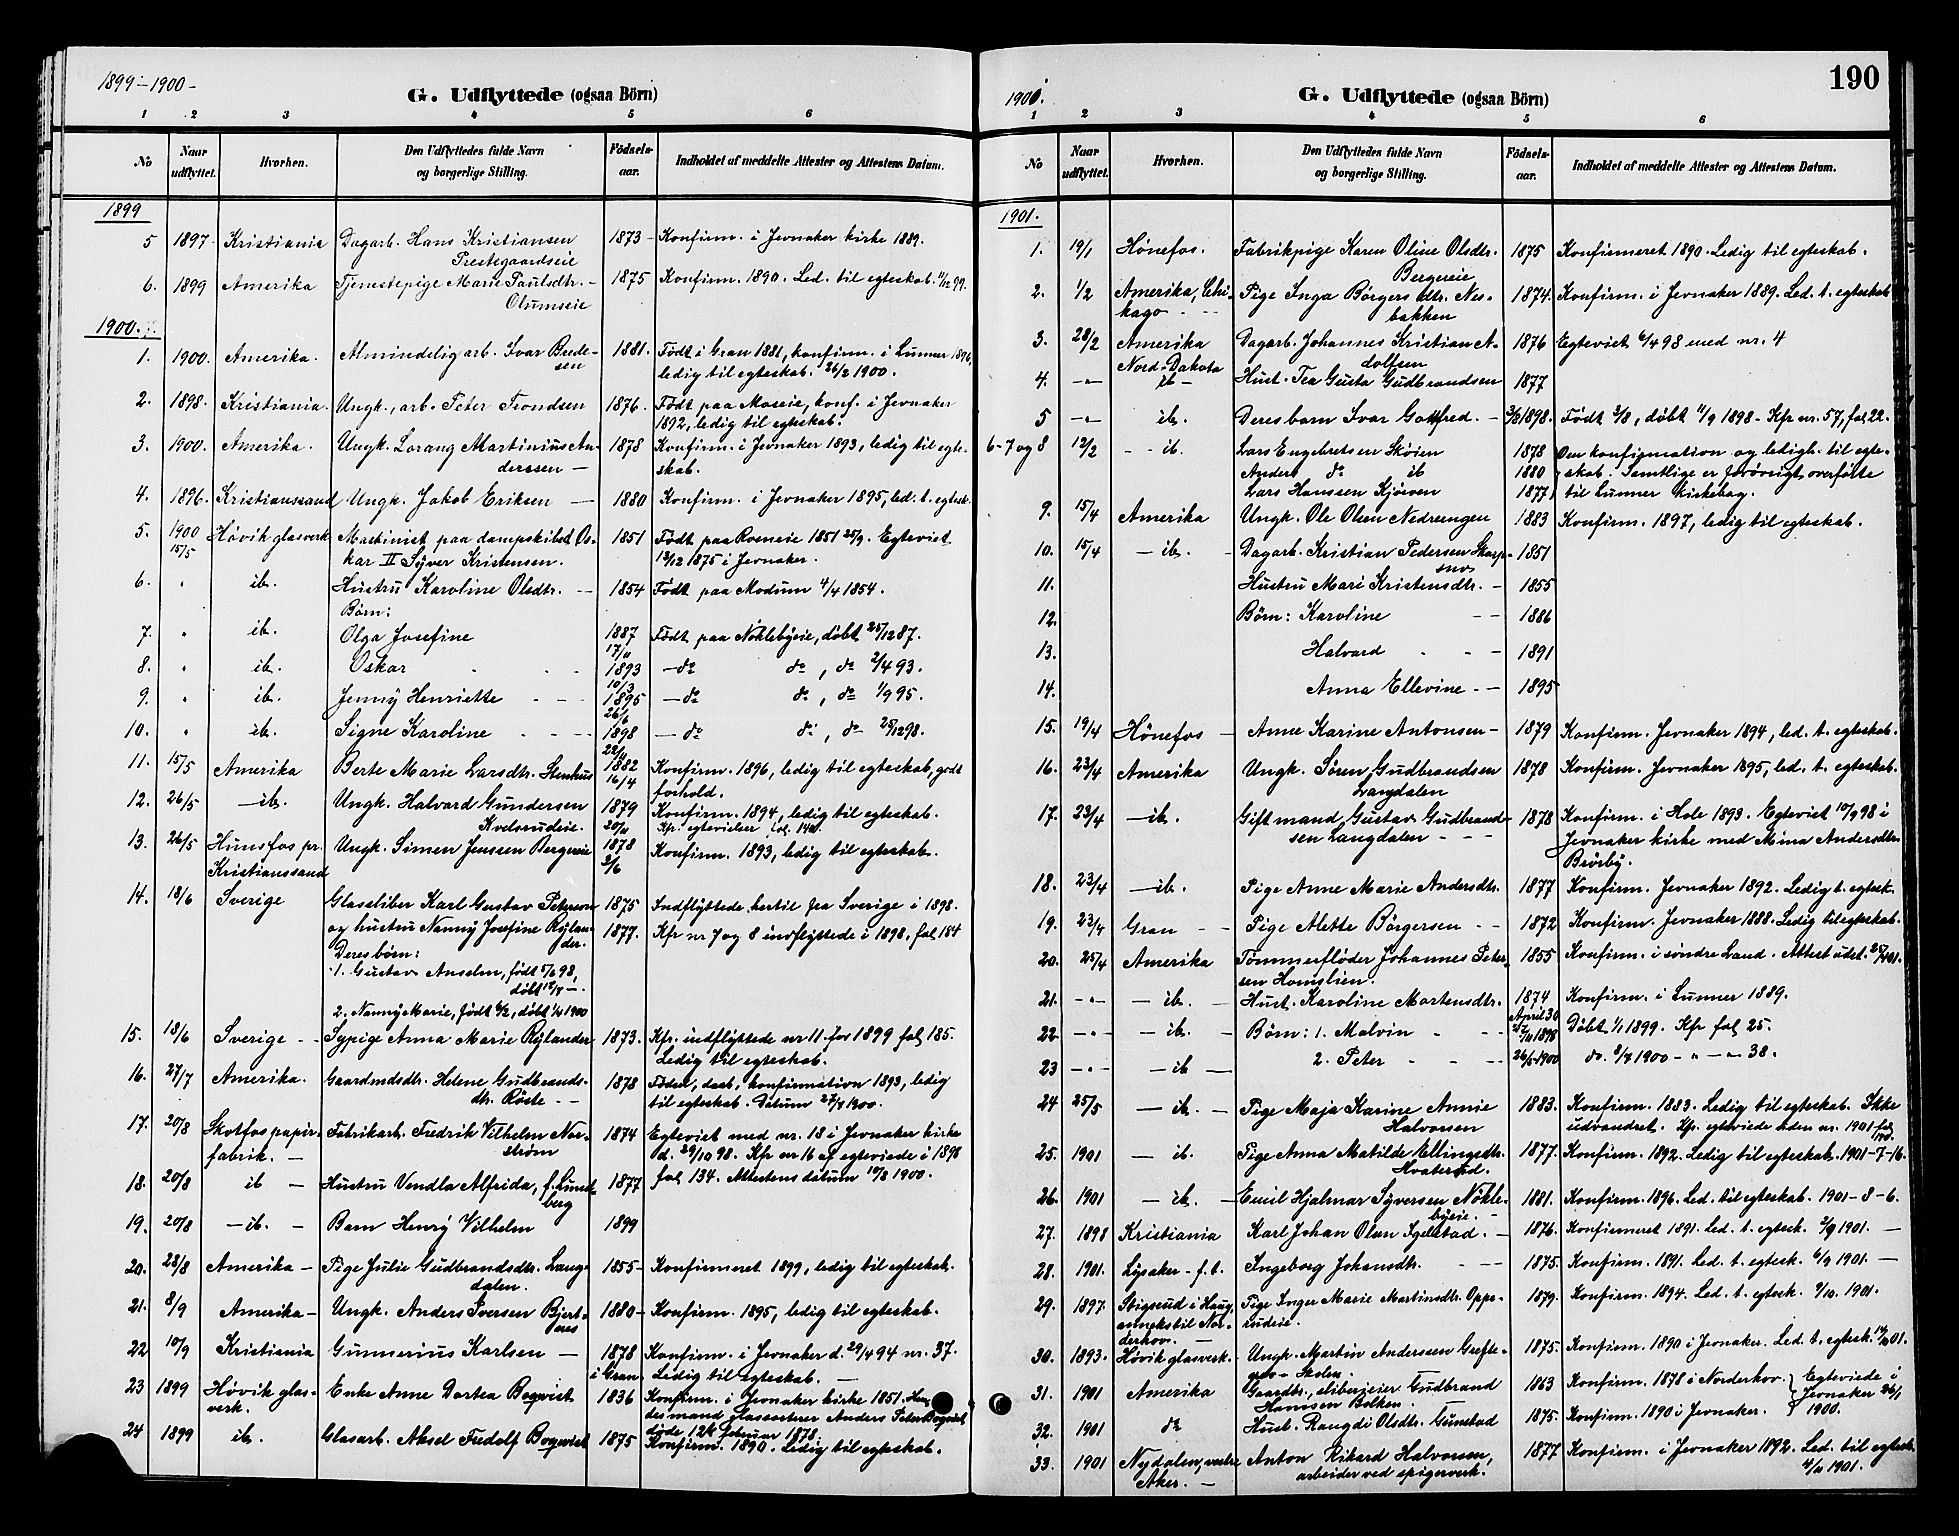 1899-1900-
G. Udflyttede (ogsaa Börn)
1 2 3 4 5 6
No
Naar udflyttet.
Hvorhen.
Den Udflyttedes fulde Navn og borgerlige Stilling.
Födsels-aar.
Indholdet af meddelte Attester og Attestens Datum.
1899
5 1897 Kristiania Dagarb. Hans Kristiansen 1873 - Konfirm. i Jevnaker kirke 1889.
Prestegaardseie
6. 1899 Amerika Tjenestepige Marie Paulsdtr. - 1875 Konfirm. 1890. Led. til egteskab. 11/12 99.
Olumseie
1900.
1. 1900. Amerika. Almindelig arb. Ivar Brede- 1881. Födt i Gran 1881, konfirm. i Lunner 1896,
sen ledig til egteskab. 26/2 1900.
2. 1898. Kristiania. Ungk., arb. Peter Trondsen 1876. Födt paa Moseie, konf. i Jevnaker
1892, ledig til egteskab.
3. 1900. Amerika. Ungk. Lorang Martinius An- 1878 Konfirm. i Jevnaker 1893, ledig til egte-
derssen - skab.
4. 1896. Kristianssand Ungk. Jakob Eriksen - 1880 Konfirm. i Jevnaker 1895, led. t. egtesk.
5. 1900 15/5 Hövik glasverk Maskinist paa dampskibet Os- 1851 Födt paa Roeneie 1851 25/9. Egteviet
kar II Syver Kristensen. 12/12 1875 i Jevnaker.
6. " ib. Hustru Karoline Olsdtr. - 1854 Födt paa Modum 4/4 1854.
Börn:
7. " ib. Olga Josefine 1887 17/11 Födt paa Nöklebyeie, döbt 25/12 87.
8. " ib. Oskar 1893 10/3 - do do, do 2/4 93.
9. " ib. Jenny Henriette 1895 26/6 - do do, do 1/9 95.
10. " ib. Signe Karoline 1898 22/11 - do do, do 25/12 98.
11. 15/5 Amerika Berte Marie Larsdtr. Stenhus 1882 16/4 Konfirm. 1896, ledig til egteskab, godt
forhold.
12. 26/5 - ib. Ungk. Halvard Gundersen 1879 20/11 Konfirm. 1894, ledig til egteskab.
Kvelsrudeie. Kfr. egtevielser fol. 140.
13. 26/5 Hunsfos pr. Ungk. Simen Jenssen Bergereie 1878 3/6 Konfirm. 1893, ledig til egteskab.
Kristianssand
14. 18/6 Sverige Glassliber Karl Gustav Peterson 1875 Indflyttede hertil fra Sverige i 1898.
og hustru Nanny Josefine Rylan- 1877. Kfr nr 7 og 8 indflyttede i 1898, fol 184
der.
Deres börn:
1. Gustav Anselm, födt 5/6 98,
döbt 17/7 -.
2. Nanny Marie, födt 6/2, döbt 1/4 1900
15. 18/6 Sverige - Sypige Anna Marie Rylander 1873. Kfr. indflyttede nr 11 for 1899 fol 185.
Ledig til egteskab.
16. 27/7 Amerika. Gaardmdsdtr. Helene Gudbrands- 1878 Födsel, daab, konfirmation 1893, ledig
dtr. Röste - til egteskab. Datum 27/7 1900.
17. 20/8 Skotfos papir- Fabrikarb. Fredrik Vilhelm Nor- 1874 Egteviet med nr. 18 i Jevnaker kirke
fabrik. - ström d. 29/10 98. Kfr nr 16 af egteviede i 1898
18. 20/8 ib - Hustru Vendla Alfrida, f. Lund- 1877 fol 134. Attestens datum 10/8 1900.
berg
19. 20/8 - ib. - Barn Henry Vilhelm 1899
20. 28/8 Amerika - Pige Julie Gudbrandsdtr. Lang- 1855 - Konfirmeret 1899, ledig til egteskab.
dalen.
21. 8/9 Amerika - Ungk. Anders Iversen Bjert- 1880 - Konfirm. 1895, ledig til egteskab.
nes
22 10/9 Kristiania Gunnerius Karlsen - 1878 Konfirm. i Jevnaker d. 29/4 94 nr. 37.
i Gran. Ledig til egteskab. -
23 1899 Hövik glas- Enke Anne Dortea Boqwist 1836 Konfirm. i Jevnaker kirke 1851. Hen-
verk. des mand glassorterer Anders Peter Boqwist
döde 12te februar 1878.
24 1899 ib. Glasarb. Aksel Fredolf Boqwist 1875 Konfirm. 1890. Ledig til egteskab.
1901.
190
G. Udflyttede (ogsaa Börn)
1 2 3 4 5 6
No
Naar udflyttet.
Hvorhen.
Den Udflyttedes fulde Navn og borgerlige Stilling.
Födsels-aar.
Indholdet af meddelte Attester og Attestens Datum.
1901.
1. 19/1 Hönefos. Fabrikpige Karen Oline Olsdtr. 1875 Konfirmeret 1890. Ledig til egteskab.
Bergereie
2. 1/2 Amerika, Chi- Pige Inga Börgersdtr. Nes- 1874. Konfirm. i Jevnaker 1889. Led. t. egteskab
kago - - bakken
3. 28/2 Amerika Dagarb. Johannes Kristian A- 1876 Egteviet 6/4 98 med nr. 4
Nord-Dakota dolfsen
4. -"- ib - Hust. Tea Gusta Gudbrandsen 1877
5 -"- ib. Deres barn Ivar Gottfred. - 3/8 1898. Födt 3/8, döbt 11/9 1898 - Kfr nr. 57, fol 22.
6-7 og 8 12/2 - - ib Lars Engebretsen Sköien 1878 Om konfirmation og ledigh. til egte-
Anders do ib 1880 skab. Samtlige er forövrigt overförte
Lars Hanssen Kjörven 1877 til Lunner kirkebog.
9. 15/4 Amerika Ungk. Ole Olsen Nedreengen 1883 Konfirm. 1897, ledig til egteskab.
10. 15/4 - ib. - Dagarb. Kristian Pedersen Skarp- 1851
sno
11. Hustru Mari Kristensdtr. - 1855
12. Börn: Karoline - - 1886
13. Halvard - - 1891
14. Anna Ellevine - - 1895
15. 19/4 Hönefos - Anne Karine Antonsen - 1879 Konfirm. Jevnaker 1894, led. t. egteskab.
16. 23/4 Amerika Ungk. Sören Gudbrandsen 1878 Konfirm. Jevnaker 1895, led. t. egteskab.
Langdalen
17. 23/4 - ib. Gift mand Gustav Gudbrand- 1878 Konfirm. i Hole 1893. Egteviet 10/9 98 i
sen Langdalen - - - Jevnaker kirke med Mina Andersdtr.
Brörby.
18. 23/4 - ib. Pige Anne Marie Andersdtr. 1877 Konfirm. Jevnaker 1892. Ledig t. egtesk.
19. 23/4 Gran - - Pige Alette Börgersen - - 1872 Konfirm. Jevnaker 1888. Ledig til egteskab.
20. 25/4 Amerika Tömmerflöder Johannes Peter- 1855 Konfirm. i söndre Land. Attest udst. 25/4 1901.
sen Homslien.
21. -"- - ib. - Hust. Karoline Mortensdtr. 1874 April 30 Konfirm. i Lunner 1889.
22 -"- - ib. Börn: 1. Malvin - - 27/11 1898 Döbt 1/1 1899. Kfr fol 25.
23 -"- - ib - 2. Peter - - 26/5 1900 do. 8/7 1900 - " - " - 38.
24 25/5 - ib. - Pige Maja Karine Annie 1883. Konfirm. 1883. Ledig til egteskab. Ikke
Halvorsen udvandret. Kfr. egteviede uden nr. 1901 fol
25. 1901 - ib. Pige Anna Matilde Ellingsdtr. 1877. Konfirm. 1892. Ledig til egteskab. 1901-7-16.
Hvaterud.
26. 1901 - ib. - Emil Hjalmar Syversen Nökle- 1881. Konfirm. 1896. Led. til egteskab. 1901-8-6.
byeie. -
27. 1898 Kristiania Karl Johan Olsen Igelstad. - 1876. Konfirmeret 1891. Led. t. egtesk. 2/9 1901. -
28. 1901. Lysaker - f. t. Ingeborg Johansdtr. - - - 1875. Konfirm. 1891. Led. t. egtesk. 6/9 1901. -
29. 1897. Stigsrud i Haug, Pige Inger Marie Martinsdtr. Oppe- 1879. Konfirm. 1894. Led. t. egtesk. 9/10. 1901.
annekstil Nor- rudeie.
derhov. -
30. 1893. Hövik glasverk. - Ungk. Martin Anderssen Grefte- 1875. Konfirm. 1890 i Jevnaker. Led. t. egtesk.
31. 1901 Amerika Gaardbr., slibereieier Gudbrand 1863 Konfirm. 1878 i Norderhov. } Egteviede i
Hanssen Bolken. - Jevnaker 26/1
32. 1901 do Hust. Rangdi Olsdtr. Gunstad 1875. Konfirm. 1890 i Jevnaker. } 1900.
33. 1901 Nydalen, vestre Anton Rikard Halvorsen, 1877 Konfirm. i Jevnaker 1892. Led. til egtesk.
Aker. - arbeider ved spigerverk. 4/11 1901.